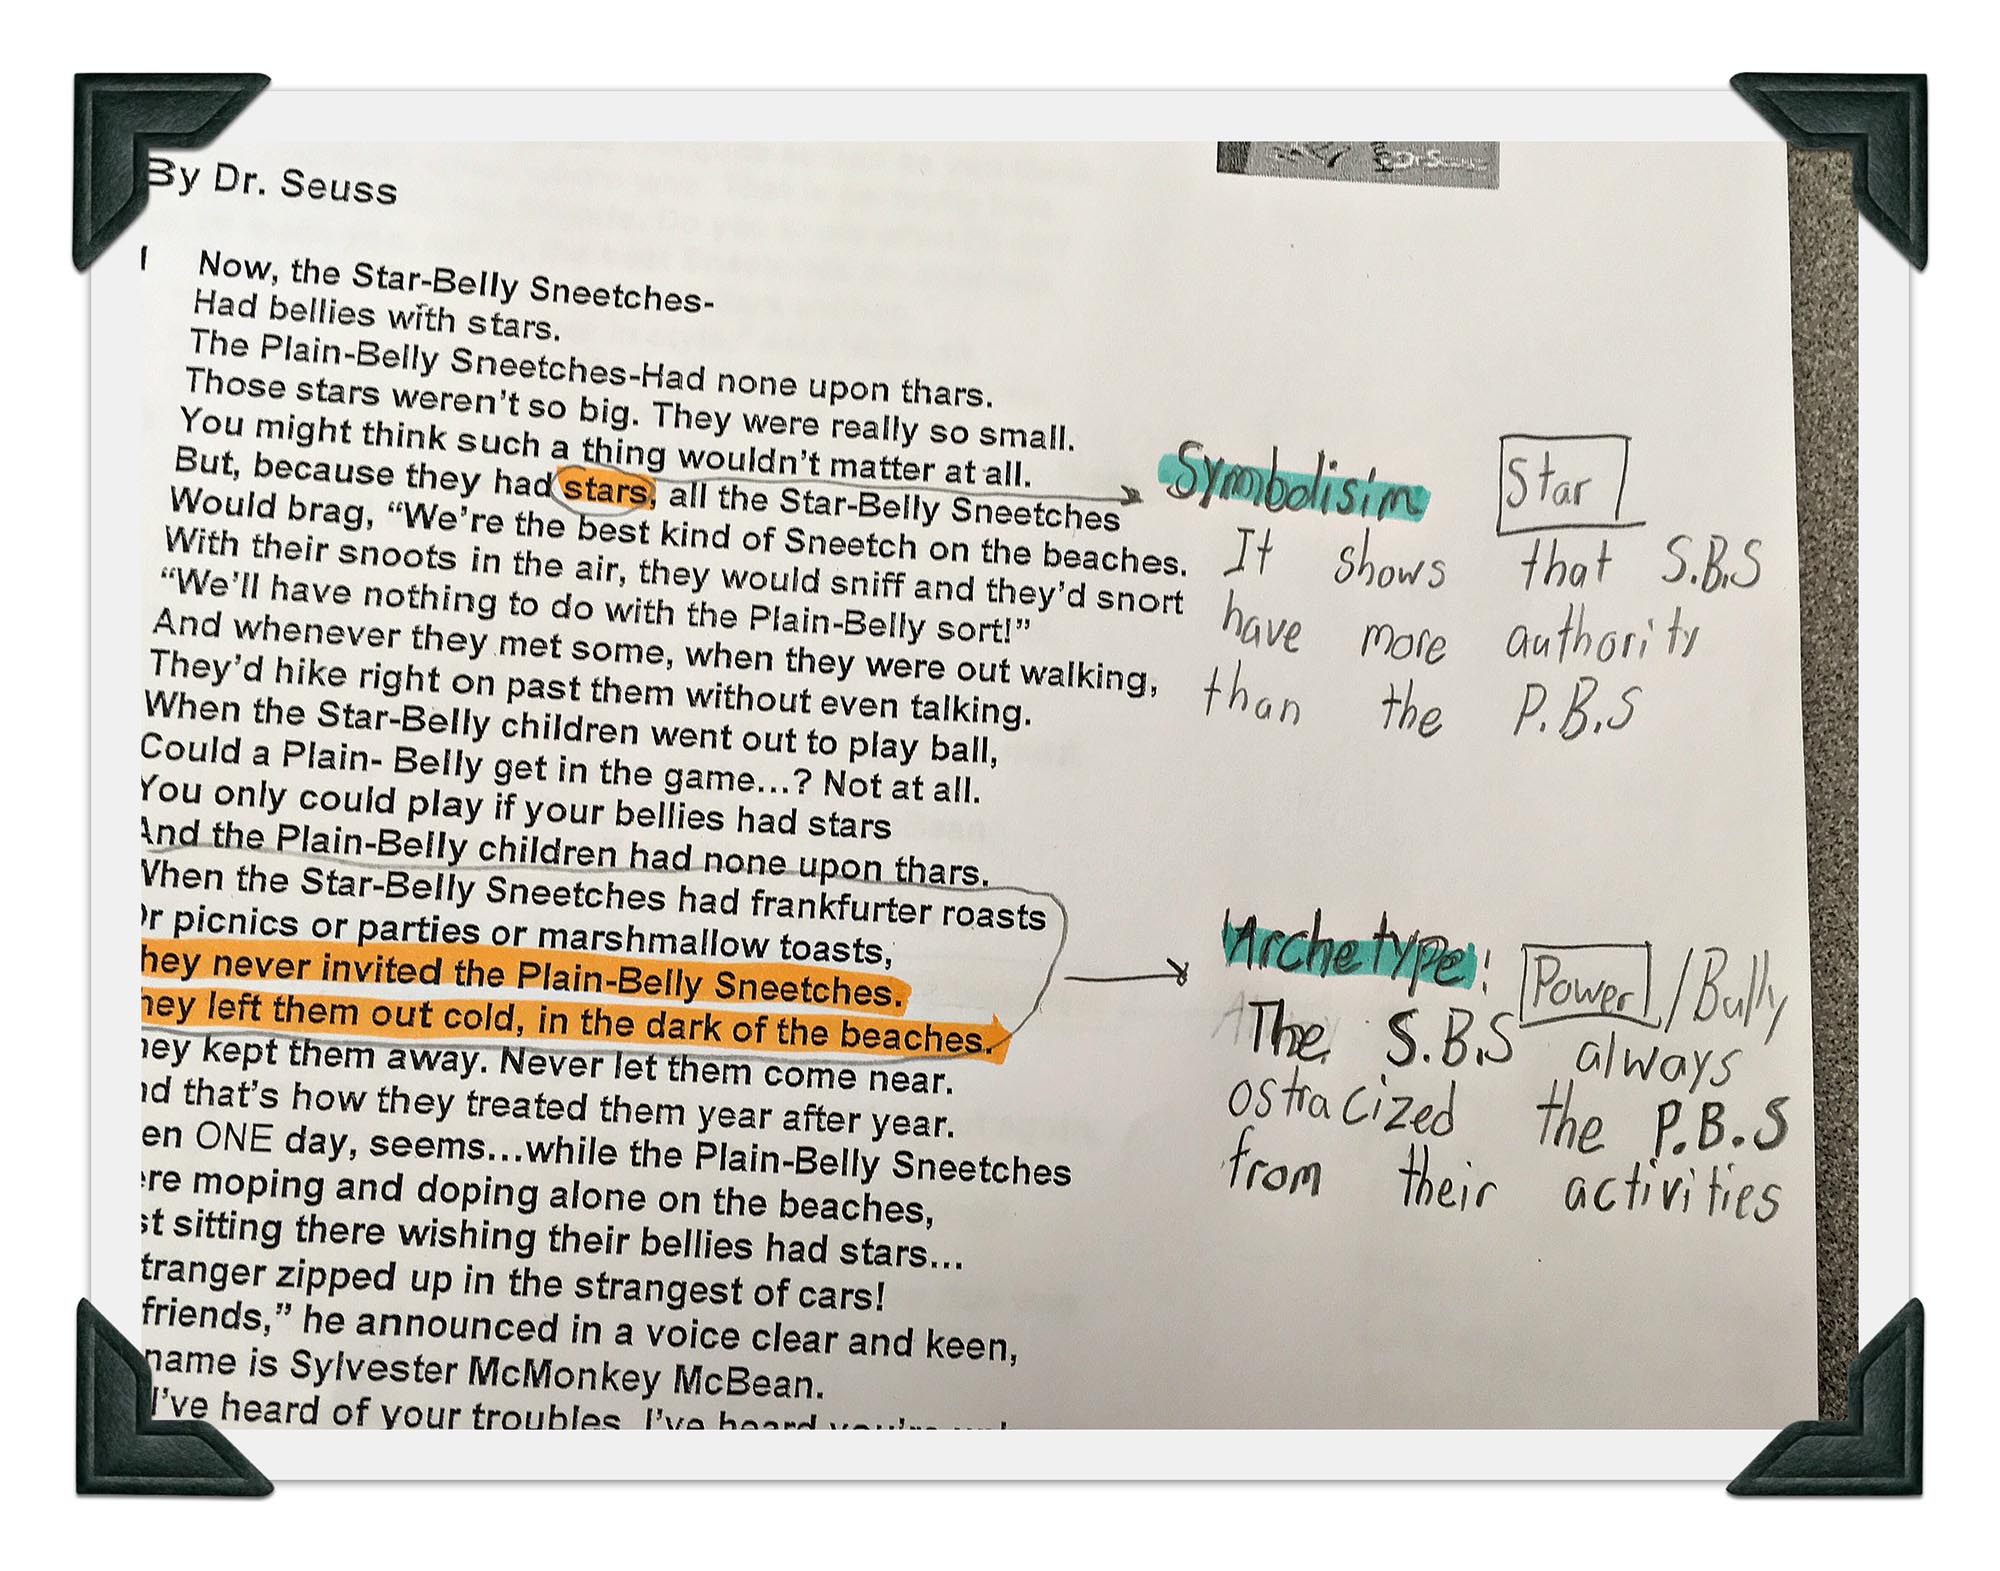 By Dr. Seuss
Now, the Star-Belly Sneetches-
Had bellies with stars.
The Plain-Belly Sneetches-Had none upon thars.
Those stars weren't so big. They were really so small.
You might think such a thing wouldn't matter at all.
But, because they had stars, all the Star-Belly Sneetches
Would brag, "We're the best kind of Sneetch on the beaches.
With their snoots in the air, they would sniff and they'd snort
"We'll have nothing to do with the Plain-Belly sort!"
And whenever they met some, when they were out walking,
They'd hike right on past them without even talking.
When the Star-Belly children went out to play ball,
Could a Plain- Belly get in the game...? Not at all.
You only could play if your bellies had stars
And the Plain-Belly children had none upon thars.
When the Star-Belly Sneetches had frankfurter roasts
r picnics or parties or marshmallow toasts,
hey never invited the Plain-Belly Sneetches.
hey left them out cold, in the dark of the beaches.
hey kept them away. Never let them come near.
nd that's how they treated them year after year.
en ONE day, seems...while the Plain-Belly Sneetches
re moping and doping alone on the beaches,
st sitting there wishing their bellies had stars...
tranger zipped up in the strangest of cars!
friends," he announced in a voice clear and keen,
name is Sylvester McMonkey McBean.
I've heard of your troubles. I've heard you're
Symbolisim Star
It shows that S.B.S
have more authority
than the P.B.S
Archetype: Power/Bully
The S.B.S always
ostracized the P.B.S
from their activities
Dr Seuss